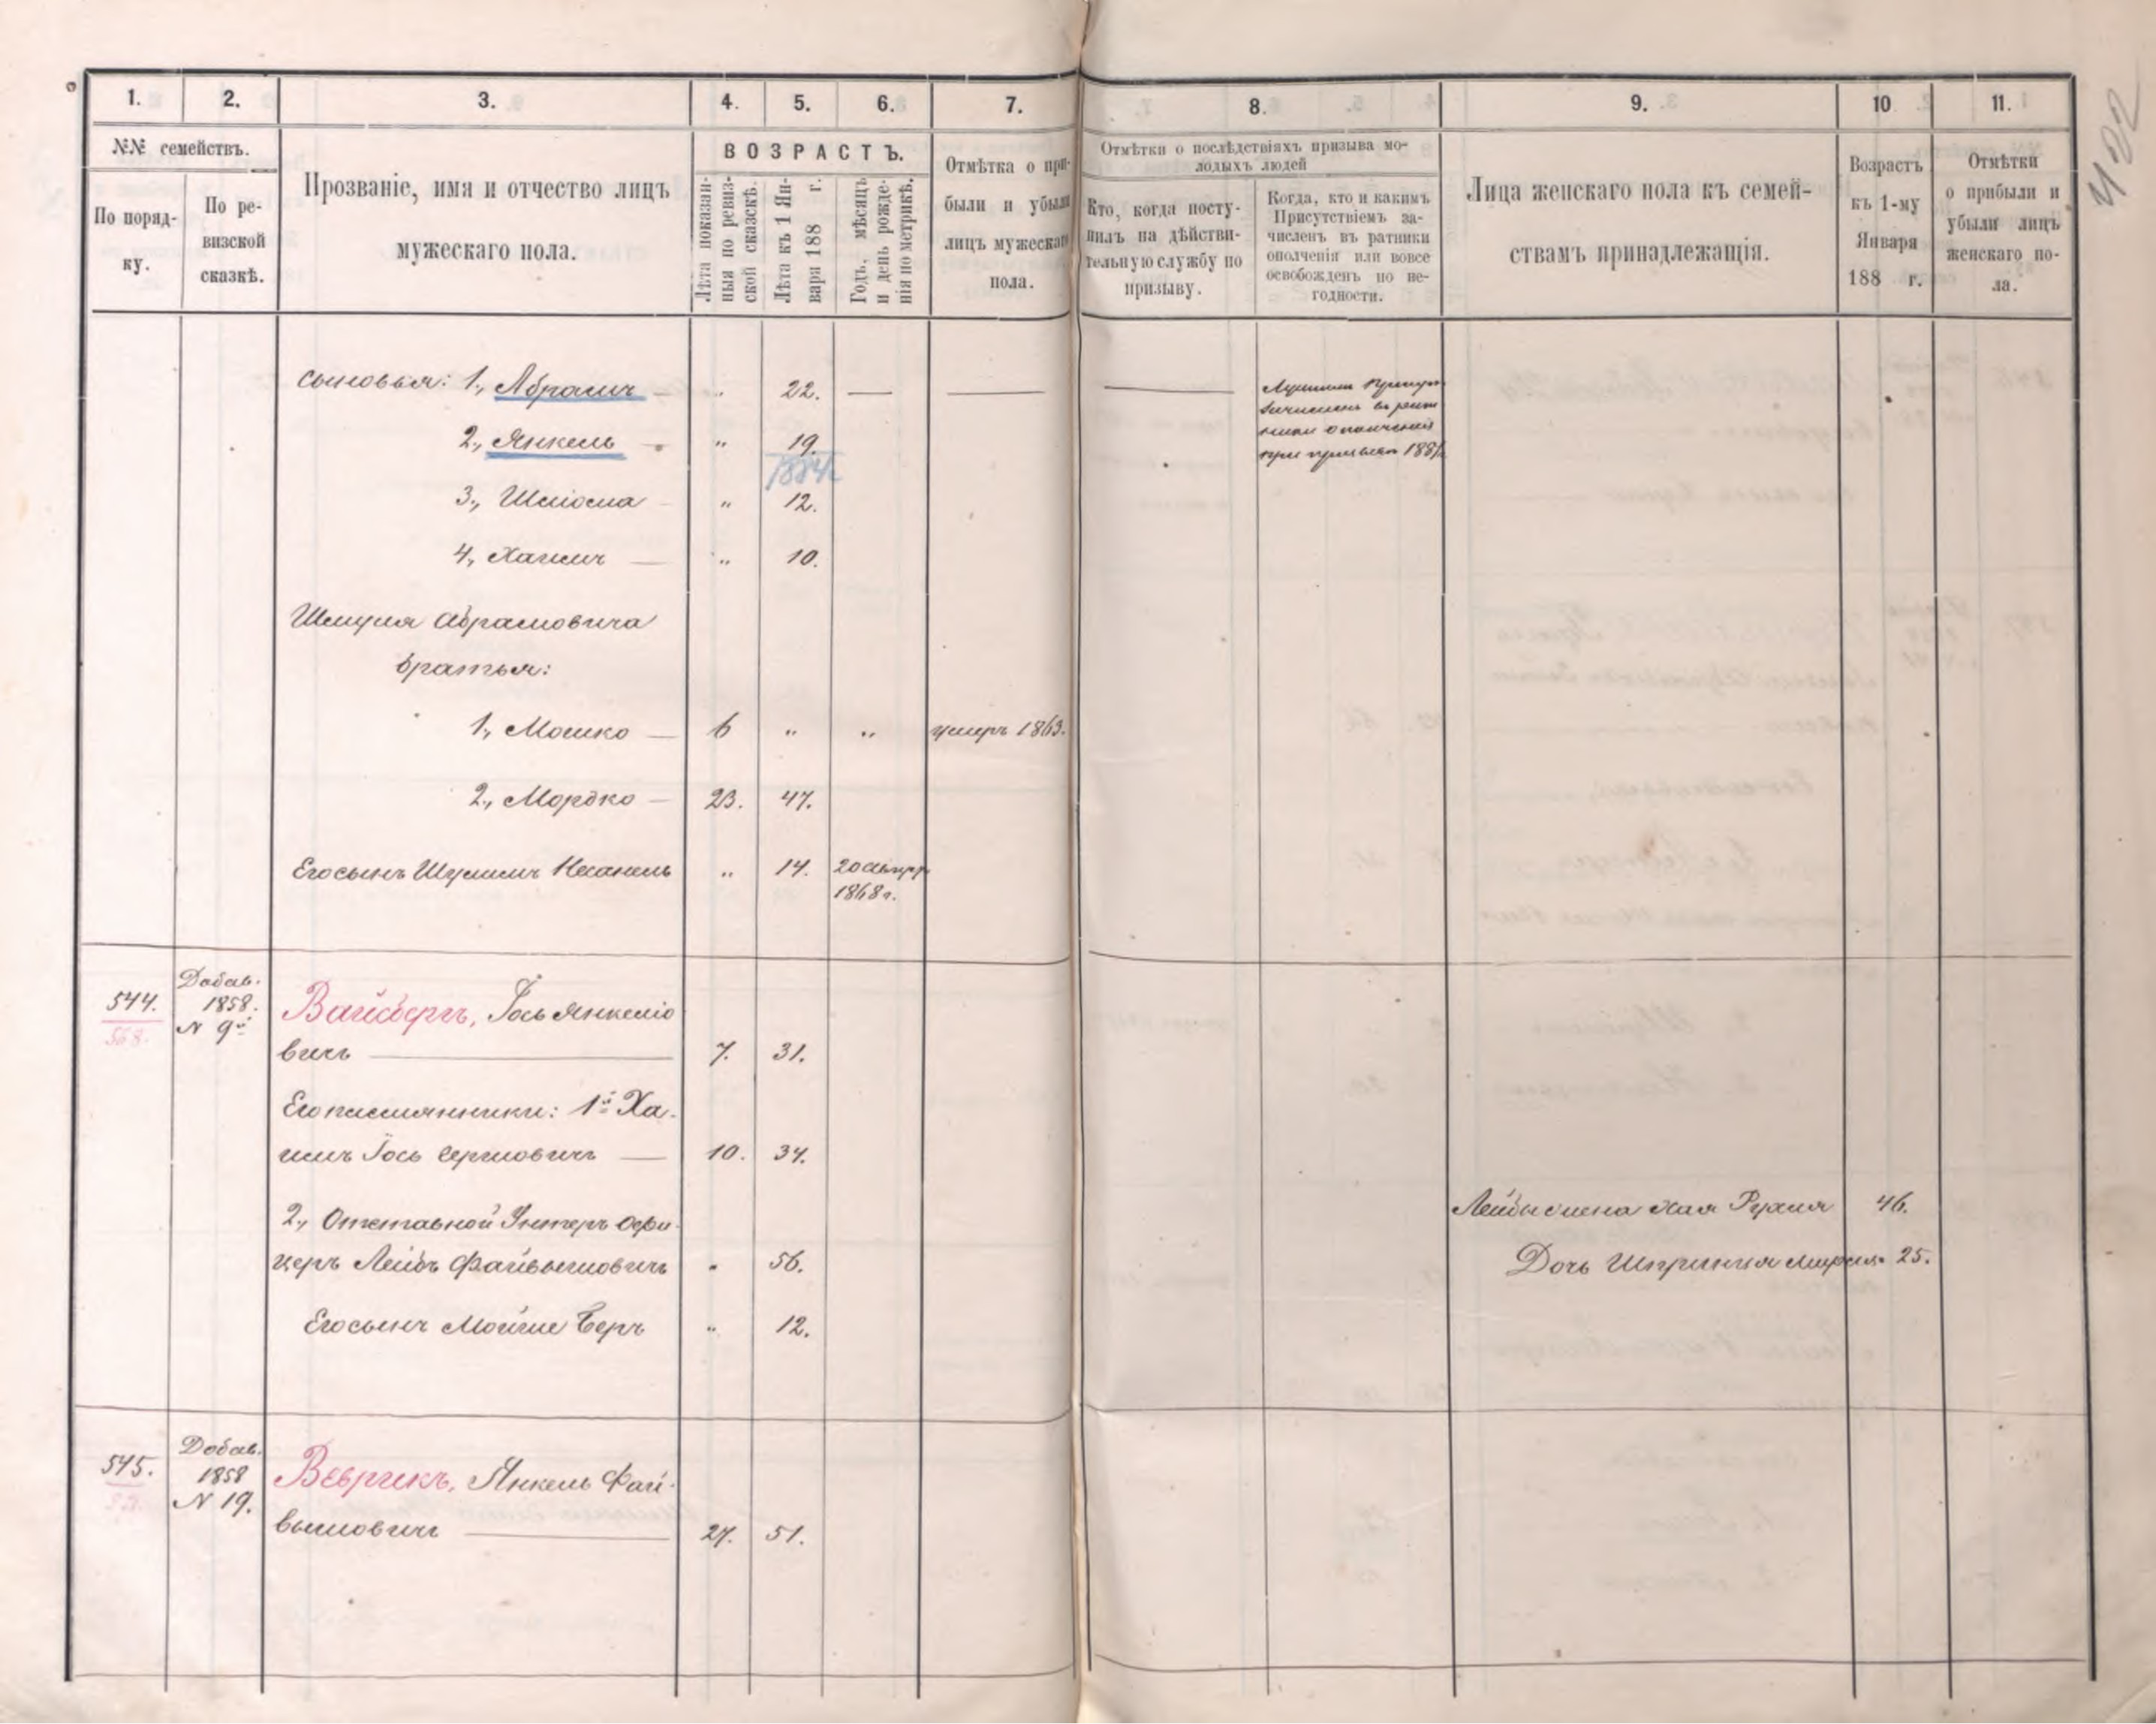 1. 2. 3. 4. 5. 6. 7. 8. 9. 10 11.
№№ семействъ.
По поряд-
ку.
По ре-
визской
сказкѣ.
Прозваніе, имя и отчество лицъ
мужескаго пола.
ВОЗРАСТЪ.
Лѣта показан-
ныя по ревиз-
ской сказкѣ.
Лѣта къ 1 Ян-
варя 188 г.
Годъ, мѣсяцъ
и день рожде-
нія по метрикѣ.
Отмѣтка о при-
были и убыли
лицъ мужескаго
пола.
Отмѣтки о послѣдствіяхъ призыва мо-
лодыхъ людей
Кто, когда посту-
пилъ на дѣйстви-
тельную службу по
призыву.
Когда, кто и какимъ
Присутствіемъ за-
численъ въ ратники
ополченія или вовсе
освобожденъ по не-
годности.
Лица женскаго пола къ семей-
ствамъ принадлежащія.
Возрастъ
къ 1-му
Января
188 г.
Отмѣтки
о прибыли и
убыли лицъ
женскаго по-
ла.
402
сыновья: 1., Абрамъ — " 22. — — —
зачисленъ въ рат
ники ополченія
при призывѣ 1881
2., Янкель — " 19.
1884
3., Шліома — " 12.
4., Хаимъ — " 10.
Шмуля Абрамовича
братья:
1., Мошко — 6 " " умеръ 1863.
2., Мордко — 23. 47.
Его сынъ Шулимъ Несанель " 14.
1868 г.
544. Добав.
1858.
N 9й
568.
Вайсбергъ, Іось Янкеліо
вичъ — 7. 31.
Его племянники: 1й Ха-
имъ Іось Серұловичъ — 10. 34.
2., Отставной Унтеръ Офи-
церъ Лейбъ Файвышовичъ " 56.
Его сынъ Мойше Беръ " 12.
Лейбы жена Хая Рухля 46.
Дочь Шпринця Мирля 25.
545. Добав.
1858
N 19.
Вебрикъ, Янкель Фай-
вышовичъ — 27. 51.